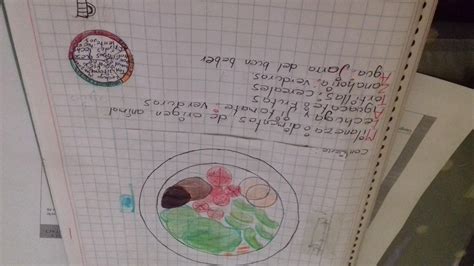 Contiene:
Milaneza: alimentos de origen animal
Lechuga y jitomate: verduras
Aguacate: frutas
Tortillas: cereales
Zanahoria: verduras
Agua: Jarra del buen beber